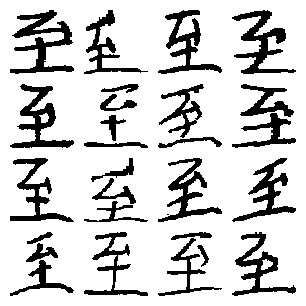 至至至至
至至至至
至至至至
至至至至